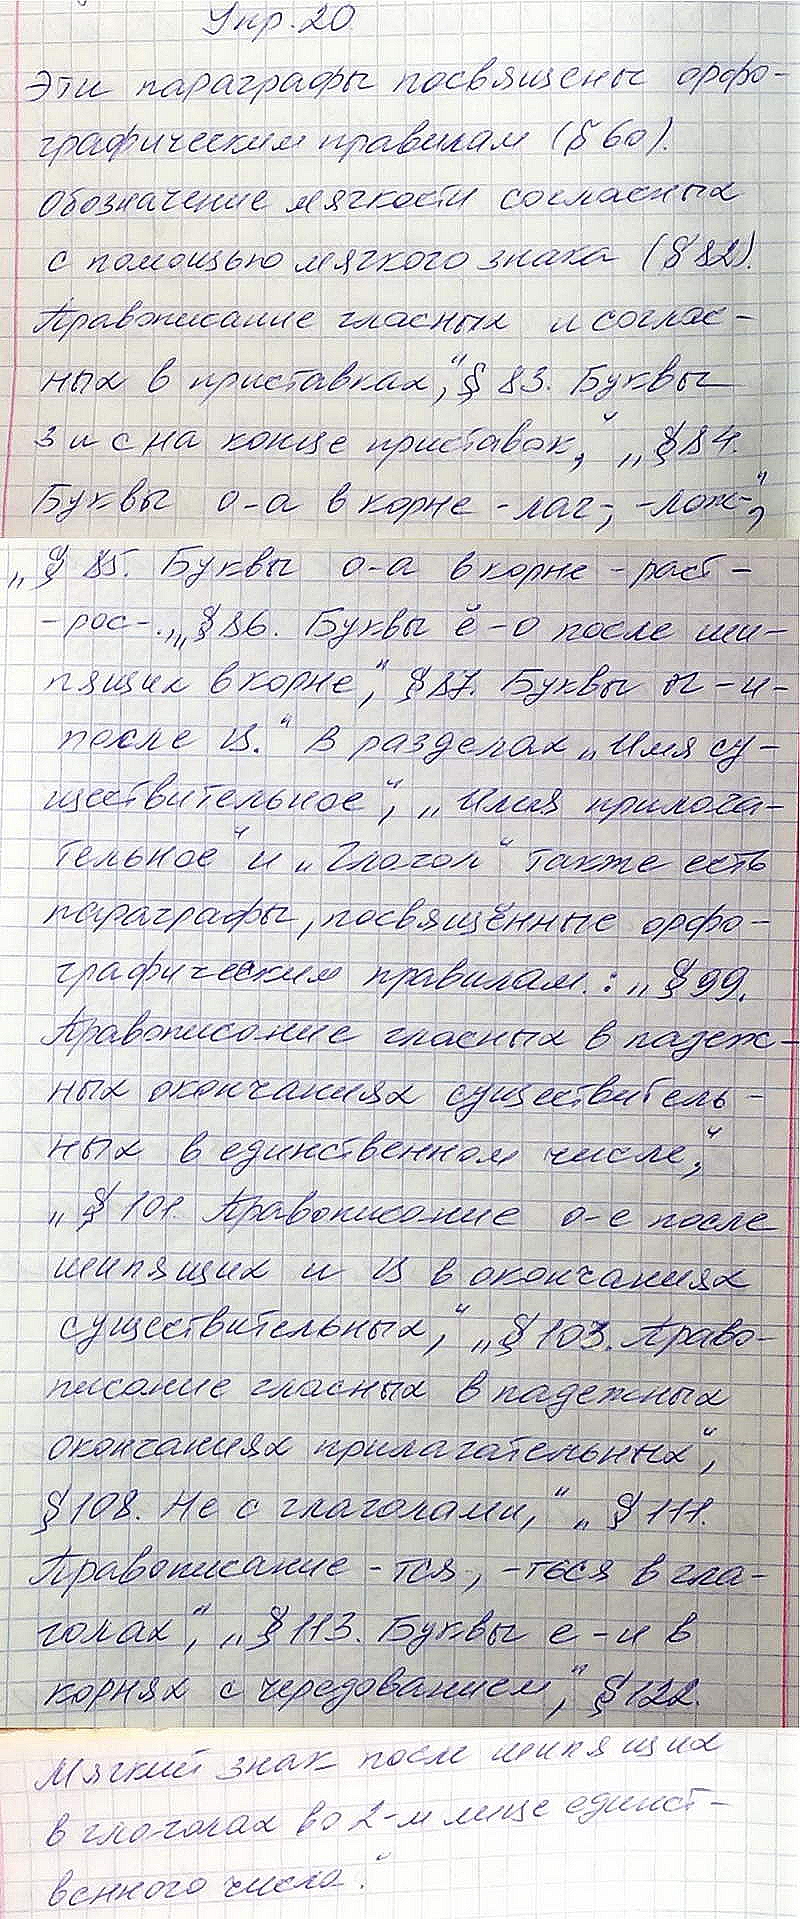 Упр. 20.
Эти параграфы посвящены орфо-
графическим правилам (§ 60).
Обозначение мягкости согласных
с помощью мягкого знака (§ 82).
Правописание гласных и соглас-
ных в приставках", § 83. Буквы
з и с на конце приставок," „§ 84.
Буквы о-а в корне -лаг-, -лож-",
„§ 85. Буквы о-а в корне -раст-
-рос-.„„§ 86. Буквы ё-о после ши-
пящих в корне", § 87. Буквы ы-и-
после ц." В разделах „Имя су-
ществительное", „Имя прилага-
тельное" и „Глагол" также есть
параграфы, посвящённые орфо-
графическим правилам.: „§ 99.
Правописание гласных в падеж-
ных окончаниях существитель-
ных в единственном числе,"
„§ 101. Правописание о-е после
шипящих и ц в окончаниях
существительных," „§ 103. Право-
писание гласных в падежных
окончаниях прилагательных",
§ 108. Не с глаголами," „§ 111.
Правописание -тся, -ться в гла-
голах", „§ 113. Буквы е-и в
корнях с чередованием", § 122.
Мягкий знак после шипящих
в глаголах во 2-м лице единст-
венного числа."